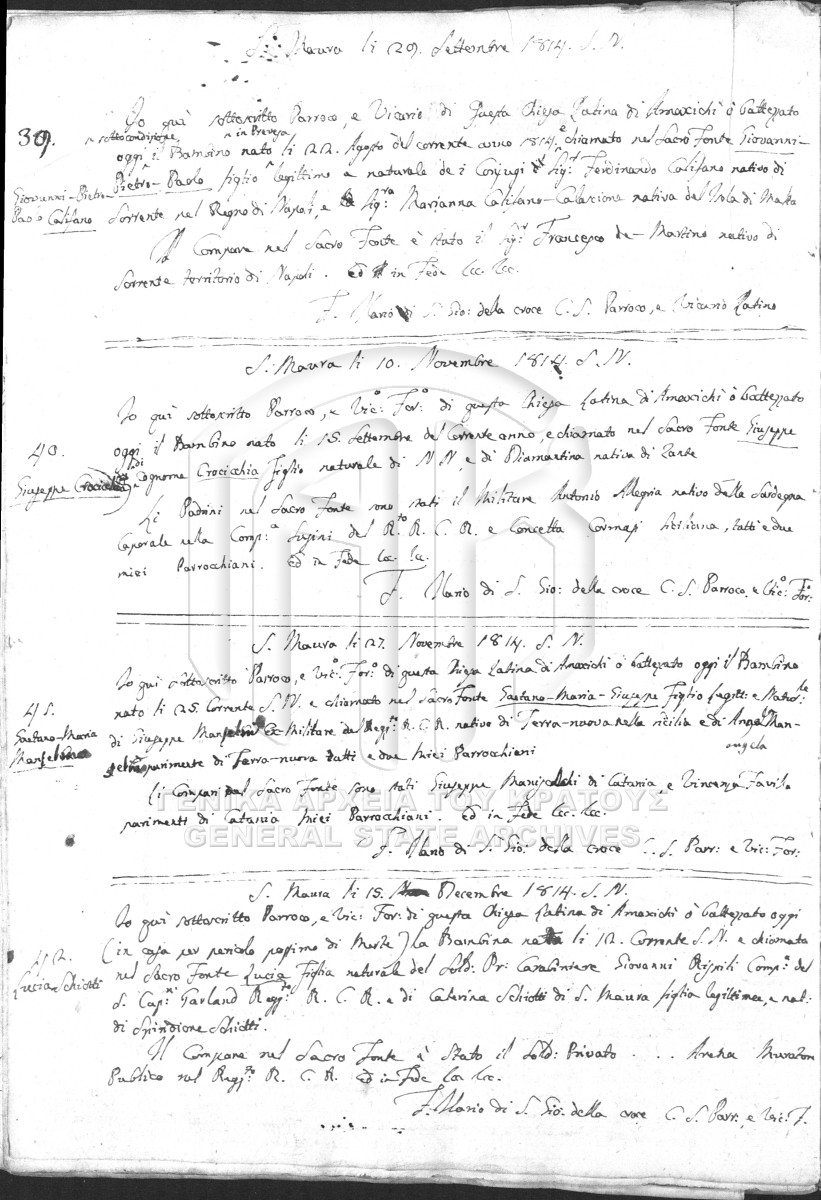 S. Maura li 29. Settembre 1814. S. N.
39.
Giovanni-Pietro-
Paolo Califano
Io quì sottoscritto Parroco, e Vicario di questa Chiesa Latina di Amaxichi ò battezzato
sottocondizione in Prevesa
oggi il Bambino nato li 22. Agosto del corrente anno 1814. e chiamato nel Sacro Fonte Giovanni-
Pietro-Paolo figlio legittimo e naturale dei Conjugi Sig.r Ferdinando Califano nativo di
Sorrento nel Regno di Napoli, e Sig.ra Marianna Califano-Calacione nativa dell'Isola di Malta
Il Compare nel Sacro Fonte è stato il Sig.r Francesco de-Martino nativo di
Sorrento territorio di Napoli. Ed in Fede &c. &c.
F. Ilario di S. Gio: della croce C. S. Parroco, e Vicario Latino
S. Maura li 10. Novembre 1814. S. N.
40.
Giuseppe Crocicchia
Io quì sottoscritto Parroco, e Vic.o For.o di questa Chiesa Latina di Amaxichi ò battezzato
oggi il Bambino nato li 15. Settembre del corrente anno, e chiamato nel Sacro Fonte Giuseppe
di Cognome Crocicchia figlio naturale di N N, e di Diamantina nativa di Zante
Li Padrini nel Sacro Fonte sono stati il Militare Antonio Allegria nativo della Sardegna
Caporale nella Comp.a Supini del R.to R. C. R. e Concetta Siciliana, tutti e due
miei Parrocchiani. Ed in Fede &c. &c.
F. Ilario di S. Gio: della croce C. S. Parroco, e Vic.o For:
S. Maura li 27. Novembre 1814. S. N.
41.
Gaetano-Maria
Io quì sottoscritto Parroco, e Vic.o For.o di questa Chiesa Latina di Amaxichi ò battezzato oggi il Bambino
nato li 25. Corrente S. N. e chiamato nel Sacro Fonte Gaetano-Maria-Giuseppe Figlio legitt: e Natur:le
di Giuseppe Ex Militare del Regg.to R. C. R. nativo di Terra-nuova nella Sicilia e di Angela Man-
angela
parimente di Terra-nuova tutti e due Miei Parrocchiani
Li Compari nel Sacro Fonte sono stati Giuseppe di Catania e Vincenza Favila
parimenti di Catania Miei Parrocchiani. Ed in Fede &c. &c.
F. Ilario di S. Gio: della croce C. S. Parr: e Vic: For:
S. Maura li 15. Decembre 1814. S. N.
42.
Lucia Schiotti
Io quì sottoscritto Parroco, e Vic: For: di questa Chiesa Latina di Amaxichi ò battezzato oggi
(in casa per pericolo prossimo di Morte) la Bambina nata li 12. Corrente S. N. e chiamata
nel Sacro Fonte Lucia Figlia naturale del Sold: Pr: Carabiniere Giovanni Rispiti Comp.a del
S. Cap.ni Garland Regg.to R. C. R. e di Caterina Schiotti di S. Maura figlia legittima, e nat:
di Spiridione Schiotti.
Il Compare nel Sacro Fonte è Stato il Sold: Privato . . . Arena Muratore
Publico nel Regg.to R. C. R. Ed in Fede &c. &c.
F. Ilario di S. Gio: della croce C. S. Parr: e Vic: F.
ΓΕΝΙΚΑ ΑΡΧΕΙΑ ΤΟΥ ΚΡΑΤΟΥΣ
GENERAL STATE ARCHIVES